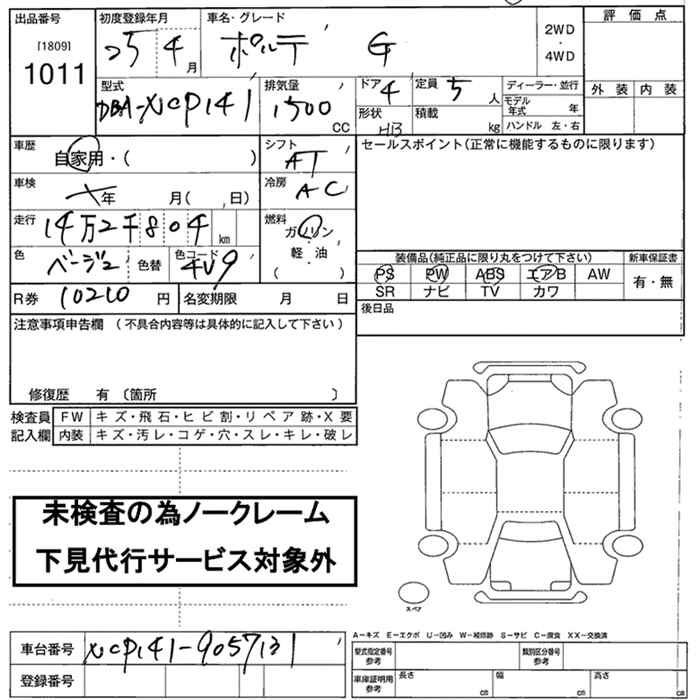 出品番号 初度登録年月 車名・グレード 2WD ・ 4WD 評価点
[1809] 1011 25 4月 ポルテ G
型式 排気量 ドア 4 定員 5人 ディーラー・並行 外装 内装
DBA-NCP141 1500 CC 形状 HB 積載 kg モデル年式 年
ハンドル 左・右
車歴 自家用・( ) シフト AT セールスポイント(正常に機能するものに限ります)
車検 年 月( , 日) 冷房 AC
走行 14万2千804 km 燃料 ガソリン
軽・油
( )
色 ベージュ 色替 色コード 4V9 装備品(純正品に限り丸をつけて下さい) 新車保証書
PS PW ABS エアB AW 有・無
SR ナビ TV カワ
R券 10210 円 名変期限 月 日
後日品
注意事項申告欄 (不具合内容等は具体的に記入して下さい)
修復歴 有 〔箇所 〕
検査員 FW キズ・飛石・ヒビ割・リペア跡・X要
記入欄 内装 キズ・汚レ・コゲ・穴・スレ・キレ・破レ
未検査の為ノークレーム
下見代行サービス対象外
スペア
A－キズ E－エクボ U－凹み W－補修跡 S－サビ C－腐食 XX－交換済
車台番号 NCP141-9057131
型式指定番号 参考 類別区分番号 参考
登録番号 車庫証明用 参考 長さ cm 幅 cm 高さ cm